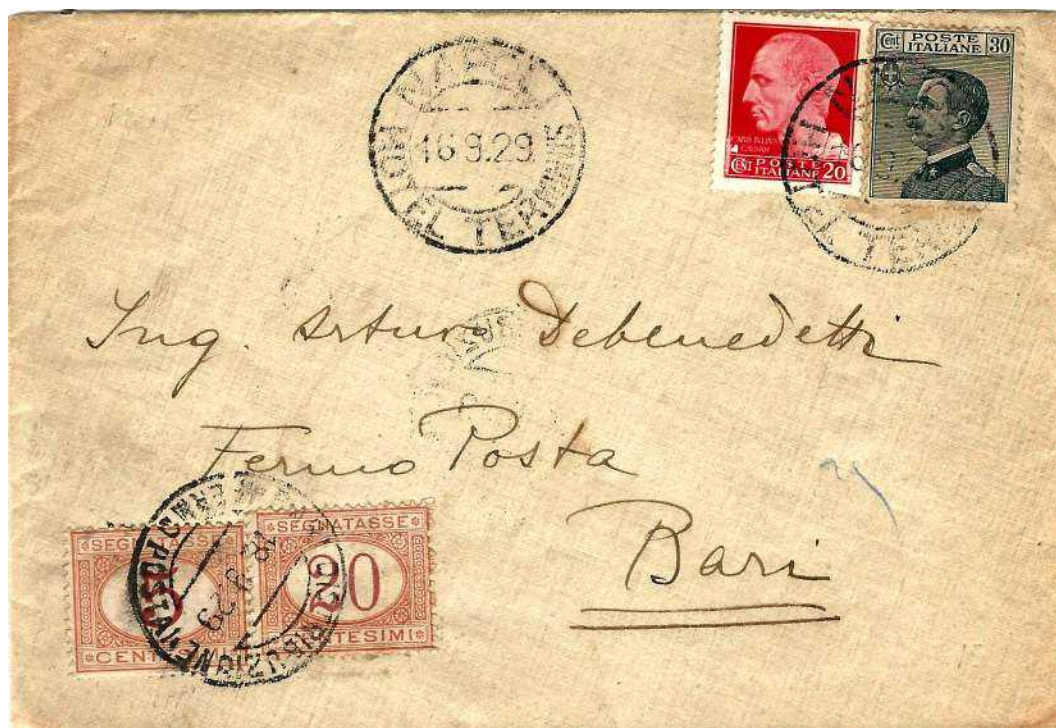 NAPOLI
16.9.29.
HOTEL TERMINUS
CENT POSTE ITALIANE 20
Cent POSTE ITALIANE 30
Ing. Arturo Debenedetti
Fermo Posta
Bari
SEGNATASSE
5
CENT
SEGNATASSE
20
CENTESIMI
DISTRIBUZIONE